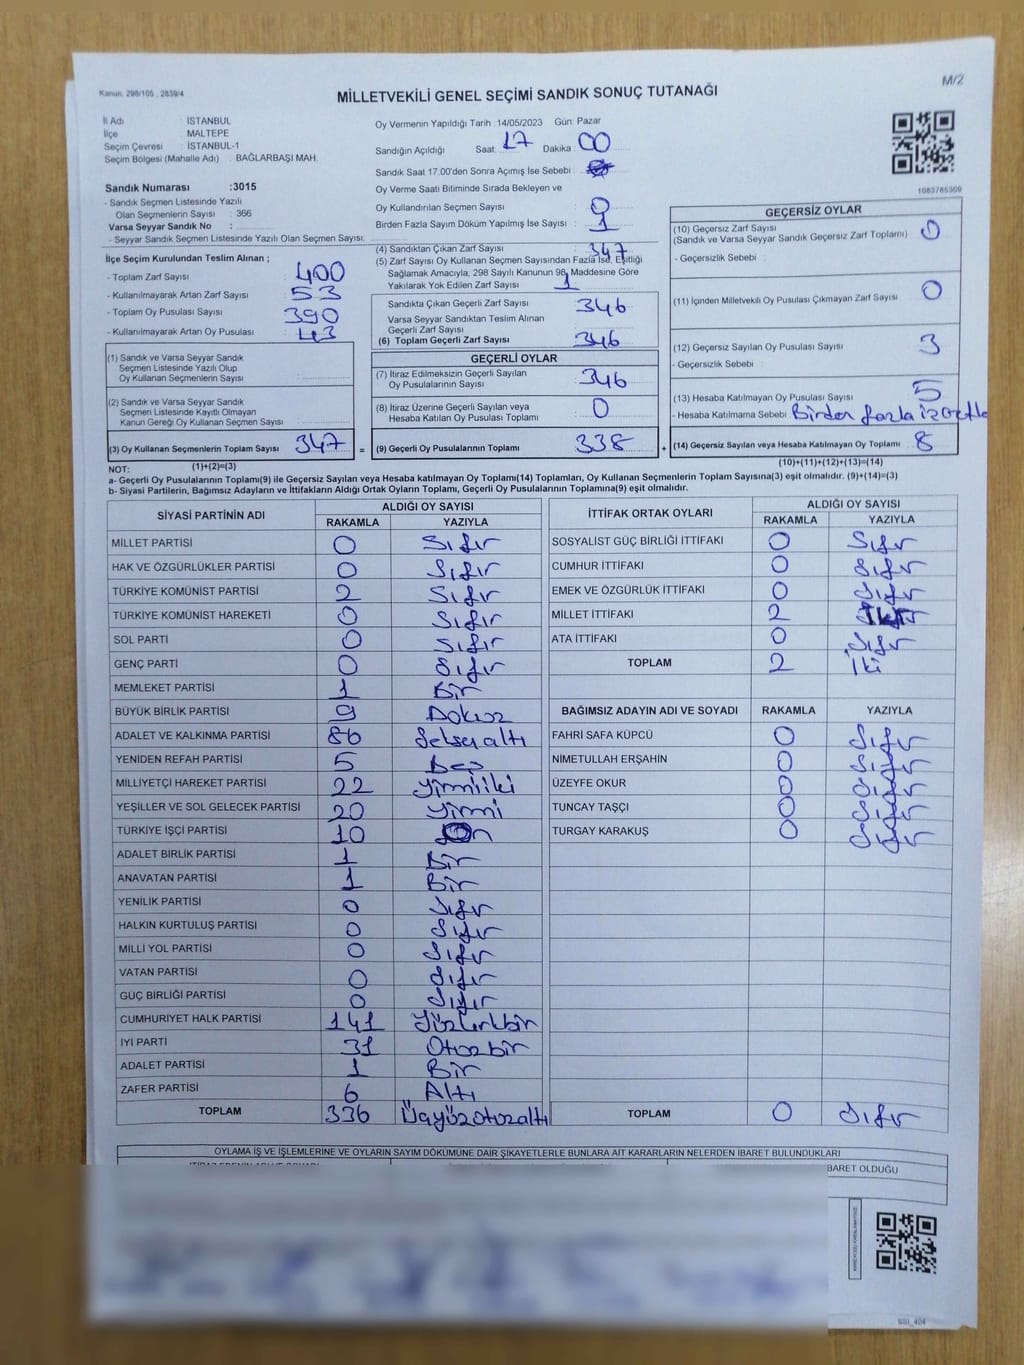 Kanun. 298/105 , 2839/4
M/2
MİLLETVEKİLİ GENEL SEÇİMİ SANDIK SONUÇ TUTANAĞI
İl Adı İSTANBUL
İlçe MALTEPE
Seçim Çevresi : İSTANBUL-1
Seçim Bölgesi (Mahalle Adı) : BAĞLARBAŞI MAH.
Sandık Numarası :3015
- Sandık Seçmen Listesinde Yazılı
Olan Seçmenlerin Sayısı : 366
Varsa Seyyar Sandık No :
- Seyyar Sandık Seçmen Listesinde Yazılı Olan Seçmen Sayısı:
İlçe Seçim Kurulundan Teslim Alınan ;
- Toplam Zarf Sayısı : 400
- Kullanılmayarak Artan Zarf Sayısı : 53
- Toplam Oy Pusulası Sayısı : 390
- Kullanılmayarak Artan Oy Pusulası : 43
(1) Sandık ve Varsa Seyyar Sandık
Seçmen Listesinde Yazılı Olup
Oy Kullanan Seçmenlerin Sayısı :
(2) Sandık ve Varsa Seyyar Sandık
Seçmen Listesinde Kayıtlı Olmayan
Kanun Gereği Oy Kullanan Seçmen Sayısı :
(3) Oy Kullanan Seçmenlerin Toplam Sayısı 347
Oy Vermenin Yapıldığı Tarih :14/05/2023 Gün: Pazar
Sandığın Açıldığı Saat: 17 Dakika : 00
Sandık Saat 17.00'den Sonra Açımış İse Sebebi :
Oy Verme Saati Bitiminde Sırada Bekleyen ve
Oy Kullandırılan Seçmen Sayısı : 0
Birden Fazla Sayım Döküm Yapılmış İse Sayısı : 1
(4) Sandıktan Çıkan Zarf Sayısı : 347
(5) Zarf Sayısı Oy Kullanan Seçmen Sayısından Fazla İse, Eşitliği
Sağlamak Amacıyla, 298 Sayılı Kanunun 98. Maddesine Göre
Yakılarak Yok Edilen Zarf Sayısı : 1
Sandıkta Çıkan Geçerli Zarf Sayısı : 346
Varsa Seyyar Sandıktan Teslim Alınan
Geçerli Zarf Sayısı :
(6) Toplam Geçerli Zarf Sayısı : 346
GEÇERLİ OYLAR
(7) İtiraz Edilmeksizin Geçerli Sayılan
Oy Pusulalarının Sayısı : 346
(8) İtiraz Üzerine Geçerli Sayılan veya
Hesaba Katılan Oy Pusulası Toplamı : 0
= (9) Geçerli Oy Pusulalarının Toplamı : 338
1083785309
GEÇERSİZ OYLAR
(10) Geçersiz Zarf Sayısı
(Sandık ve Varsa Seyyar Sandık Geçersiz Zarf Toplamı) : 0
- Geçersizlik Sebebi :
(11) İçinden Milletvekili Oy Pusulası Çıkmayan Zarf Sayısı : 0
(12) Geçersiz Sayılan Oy Pusulası Sayısı : 3
- Geçersizlik Sebebi :
(13) Hesaba Katılmayan Oy Pusulası Sayısı : 5
- Hesaba Katılmama Sebebi : Birden fazla
+ (14) Geçersiz Sayılan veya Hesaba Katılmayan Oy Toplamı : 8
NOT: (1)+(2)=(3) (10)+(11)+(12)+(13)=(14)
a- Geçerli Oy Pusulalarının Toplamı(9) ile Geçersiz Sayılan veya Hesaba katılmayan Oy Toplamı(14) Toplamları, Oy Kullanan Seçmenlerin Toplam Sayısına(3) eşit olmalıdır. (9)+(14)=(3)
b- Siyasi Partilerin, Bağımsız Adayların ve İttifakların Aldığı Ortak Oyların Toplamı, Geçerli Oy Pusulalarının Toplamına(9) eşit olmalıdır.
SİYASİ PARTİNİN ADI ALDIĞI OY SAYISI
RAKAMLA YAZIYLA
MİLLET PARTİSİ 0 Sıfır
HAK VE ÖZGÜRLÜKLER PARTİSİ 0 Sıfır
TÜRKİYE KOMÜNİST PARTİSİ 2 Sıfır
TÜRKİYE KOMÜNİST HAREKETİ 0 Sıfır
SOL PARTİ 0 Sıfır
GENÇ PARTİ 0 Sıfır
MEMLEKET PARTİSİ 1 Bir
BÜYÜK BİRLİK PARTİSİ 9 Dokuz
ADALET VE KALKINMA PARTİSİ 86 Seksenaltı
YENİDEN REFAH PARTİSİ 5 Beş
MİLLİYETÇİ HAREKET PARTİSİ 22 Yirmiiki
YEŞİLLER VE SOL GELECEK PARTİSİ 20 Yirmi
TÜRKİYE İŞÇİ PARTİSİ 10 On
ADALET BİRLİK PARTİSİ 1 Bir
ANAVATAN PARTİSİ 1 Bir
YENİLİK PARTİSİ 0 Sıfır
HALKIN KURTULUŞ PARTİSİ 0 Sıfır
MİLLİ YOL PARTİSİ 0 Sıfır
VATAN PARTİSİ 0 Sıfır
GÜÇ BİRLİĞİ PARTİSİ 0 Sıfır
CUMHURİYET HALK PARTİSİ 141 Yüzkırkbir
İYİ PARTİ 31 Otuzbir
ADALET PARTİSİ 1 Bir
ZAFER PARTİSİ 6 Altı
TOPLAM 336 Üçyüzotuzaltı
İTTİFAK ORTAK OYLARI ALDIĞI OY SAYISI
RAKAMLA YAZIYLA
SOSYALİST GÜÇ BİRLİĞİ İTTİFAKI 0 Sıfır
CUMHUR İTTİFAKI 0 Sıfır
EMEK VE ÖZGÜRLÜK İTTİFAKI 0 Sıfır
MİLLET İTTİFAKI 2 İKİ
ATA İTTİFAKI 0 Sıfır
TOPLAM 2 İki
BAĞIMSIZ ADAYIN ADI VE SOYADI RAKAMLA YAZIYLA
FAHRİ SAFA KÜPCÜ 0 Sıfır
NİMETULLAH ERŞAHİN 0 Sıfır
ÜZEYFE OKUR 0 Sıfır
TUNCAY TAŞÇI 0 Sıfır
TURGAY KARAKUŞ 0 Sıfır
TOPLAM 0 Sıfır
OYLAMA İŞ VE İŞLEMLERİNE VE OYLARIN SAYIM DÖKÜMÜNE DAİR ŞİKAYETLERLE BUNLARA AİT KARARLARIN NELERDEN İBARET BULUNDUKLARI
BARET OLDUĞU